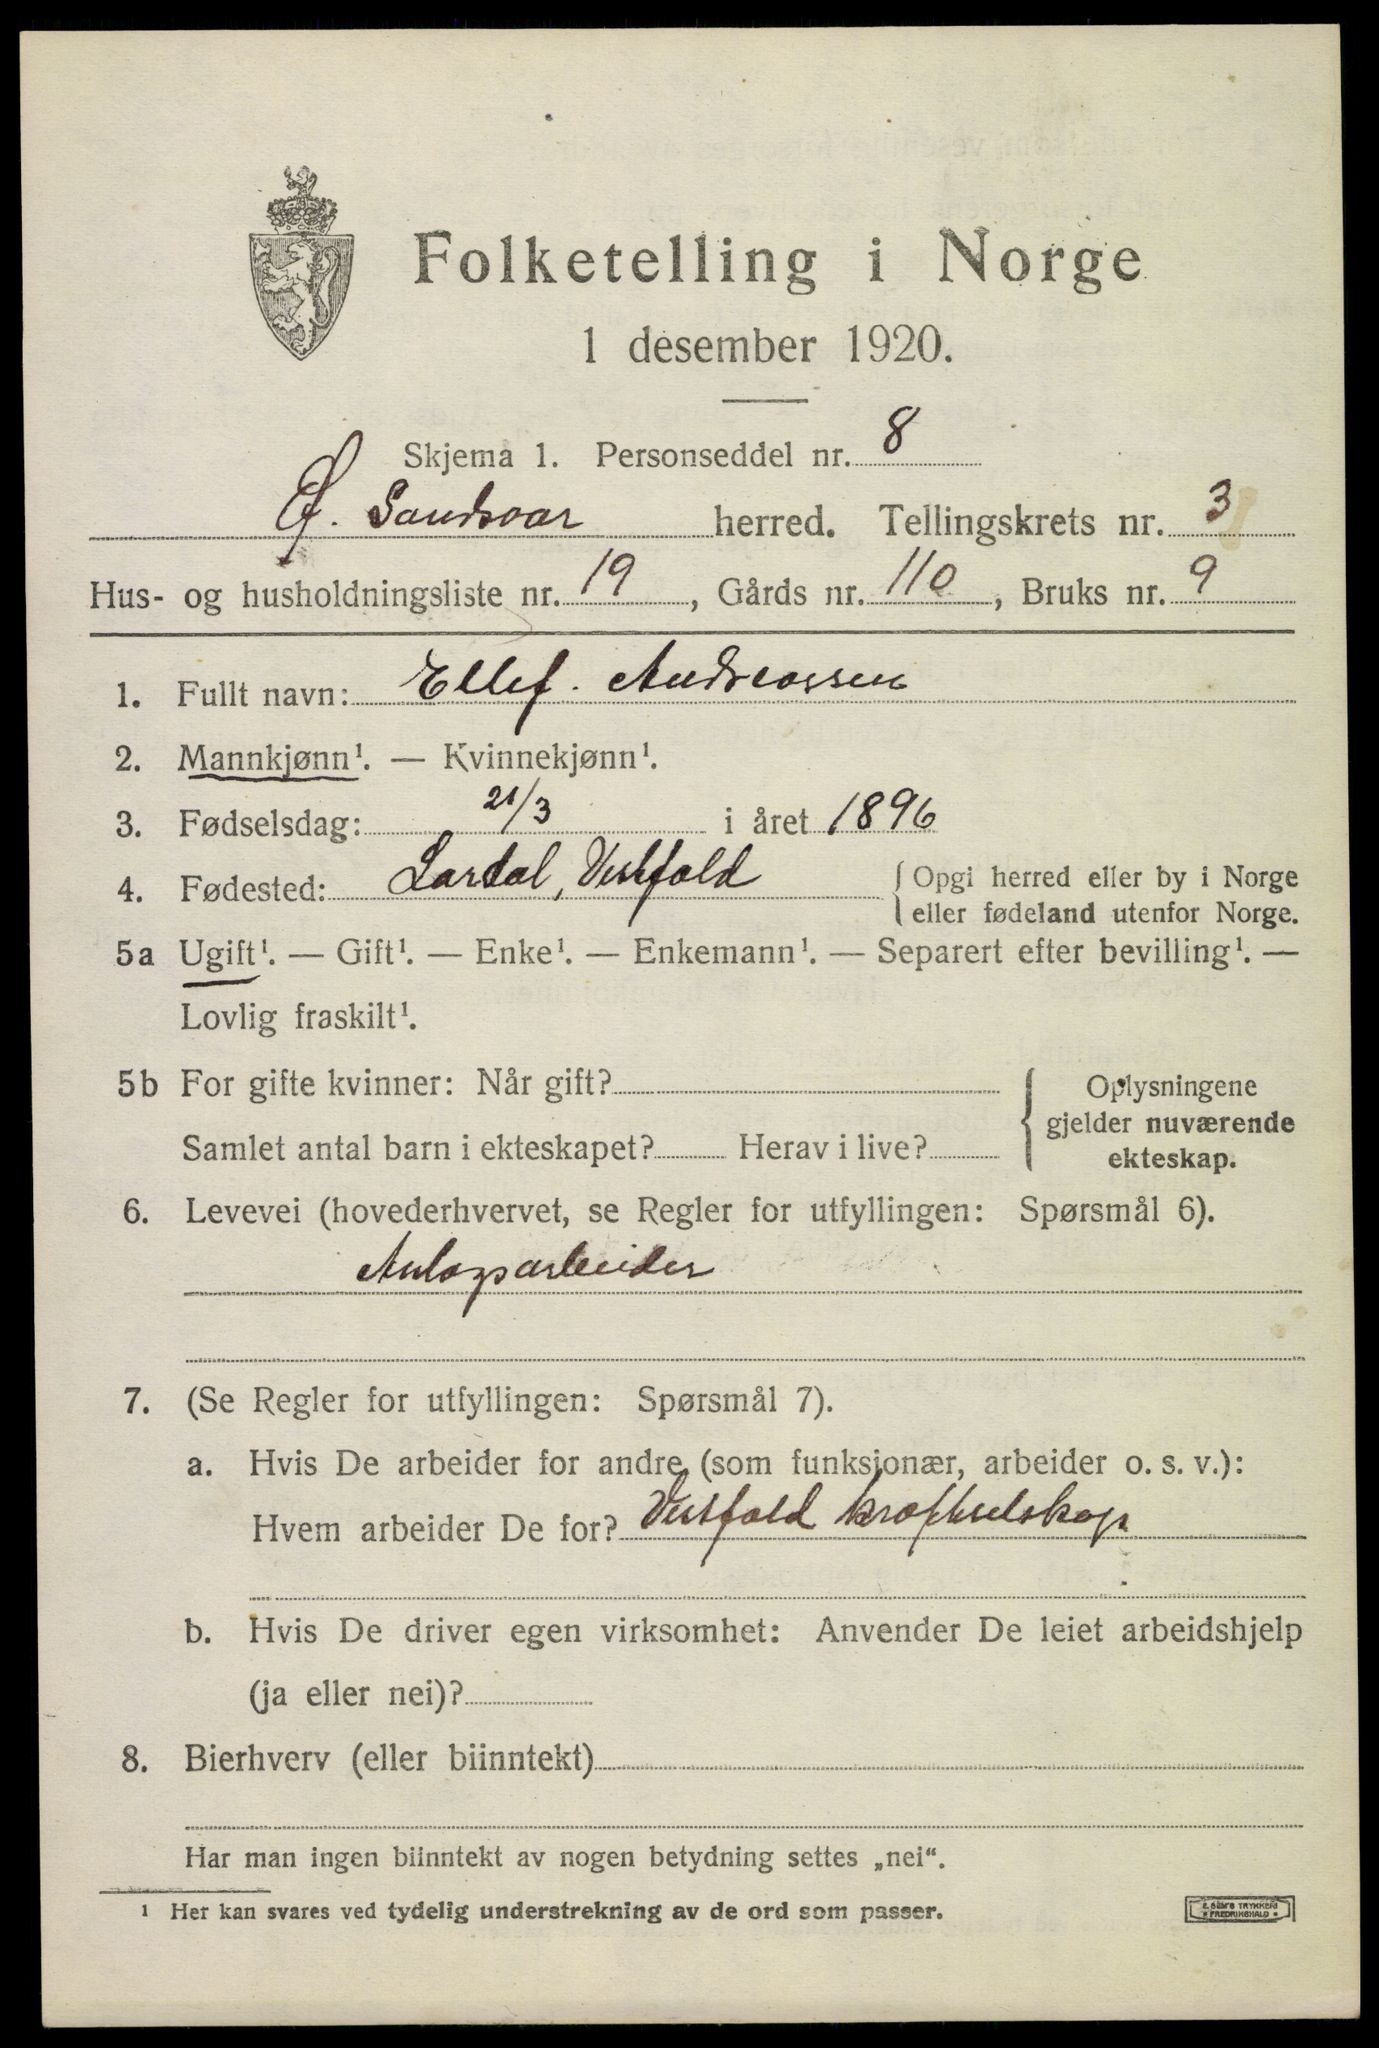 Folketelling i Norge
1 desember 1920.
Skjema 1. Personseddel nr. 8
Ø. Sandsvær herred. Tellingskrets nr. 3
Hus- og husholdningsliste nr. 19, Gårds nr. 110, Bruks nr. 9
1. Fullt navn: Ellef. Andreassen
2. Mannkjønn¹. — Kvinnekjønn¹.
3. Fødselsdag: 21/3 i året 1896
4. Fødested: Lardal, Vestfold { Opgi herred eller by i Norge
eller fødeland utenfor Norge.
5a Ugift¹. — Gift¹. — Enke¹. — Enkemann¹. — Separert efter bevilling¹. —
Lovlig fraskilt¹.
5b For gifte kvinner: Når gift? { Oplysningene
gjelder nuværende
Samlet antal barn i ekteskapet? Herav i live? ekteskap.
6. Levevei (hovederhvervet, se Regler for utfyllingen: Spørsmål 6).
Anlagsarbeider
7. (Se Regler for utfyllingen: Spørsmål 7).
a. Hvis De arbeider for andre (som funksjonær, arbeider o. s. v.):
Hvem arbeider De for? Vestfold kraftselskap
b. Hvis De driver egen virksomhet: Anvender De leiet arbeidshjelp
(ja eller nei)?
8. Bierhverv (eller biinntekt)
Har man ingen biinntekt av nogen betydning settes „nei“.
¹ Her kan svares ved tydelig understrekning av de ord som passer.
E. SEM'S TRYKKERI
* FREDRIKSHALD *